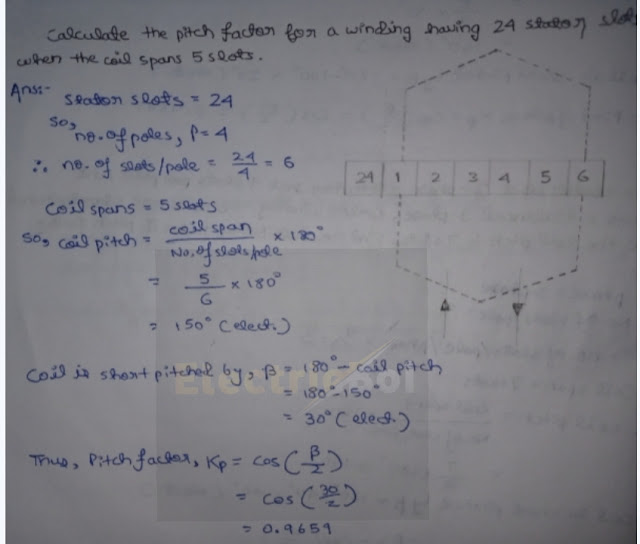 Calculate the pitch factor for a winding having 24 stator slots
when the coil spans 5 slots.
Ans:-
Stator slots = 24
So,
no. of poles, P = 4
∴ no. of slots/pole = 24/4 = 6
Coil spans = 5 slots
So, coil pitch = coil span / No. of slots/pole × 180°
= 5/6 × 180°
= 150° (elect.)
Coil is short pitched by, β = 180° - coil pitch
= 180° - 150°
= 30° (elect.)
Thus, Pitch factor, Kp = cos (β/2)
= cos (30/2)
= 0.9659
24 1 2 3 4 5 6